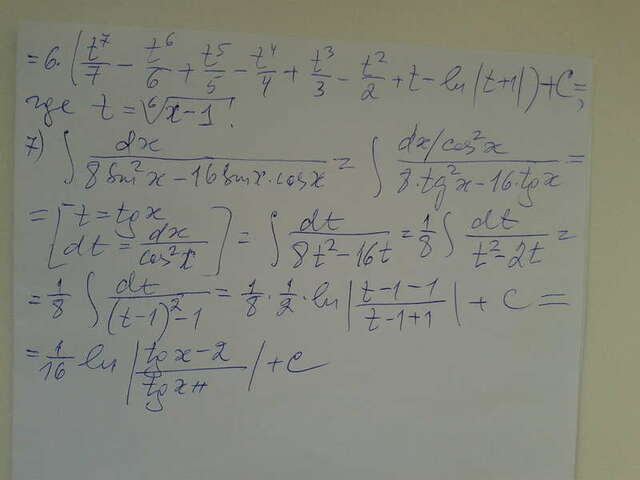 = 6 · (t⁷/7 − t⁶/6 + t⁵/5 − t⁴/4 + t³/3 − t²/2 + t − ln|t+1|) + C =,
где t = ⁶√(x−1) !
7) ∫ dx/(8 sin²x − 16 sinx · cosx) = ∫ (dx/cos²x)/(8 · tg²x − 16 · tgx) =
= [t = tgx
dt = dx/cos²x] = ∫ dt/(8t² − 16t) = 1/8 ∫ dt/(t² − 2t) =
= 1/8 ∫ dt/((t−1)² − 1) = 1/8 · 1/2 · ln|(t−1−1)/(t−1+1)| + C =
= 1/16 ln|(tgx − 2)/tgx| + C